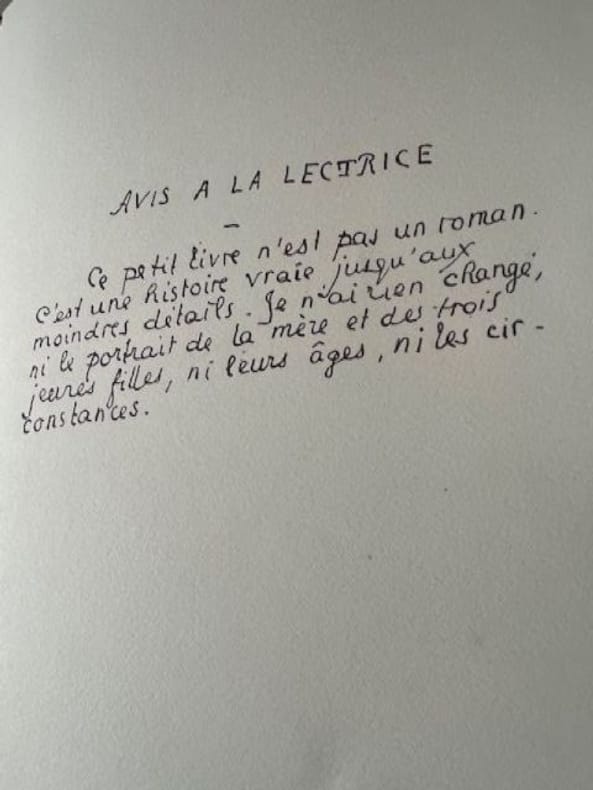 AVIS A LA LECTRICE
—
Ce petit livre n'est pas un roman.
C'est une histoire vraie jusqu'aux
moindres détails. Je n'ai rien changé,
ni le portrait de la mère et des trois
jeunes filles, ni leurs âges, ni les cir-
constances.